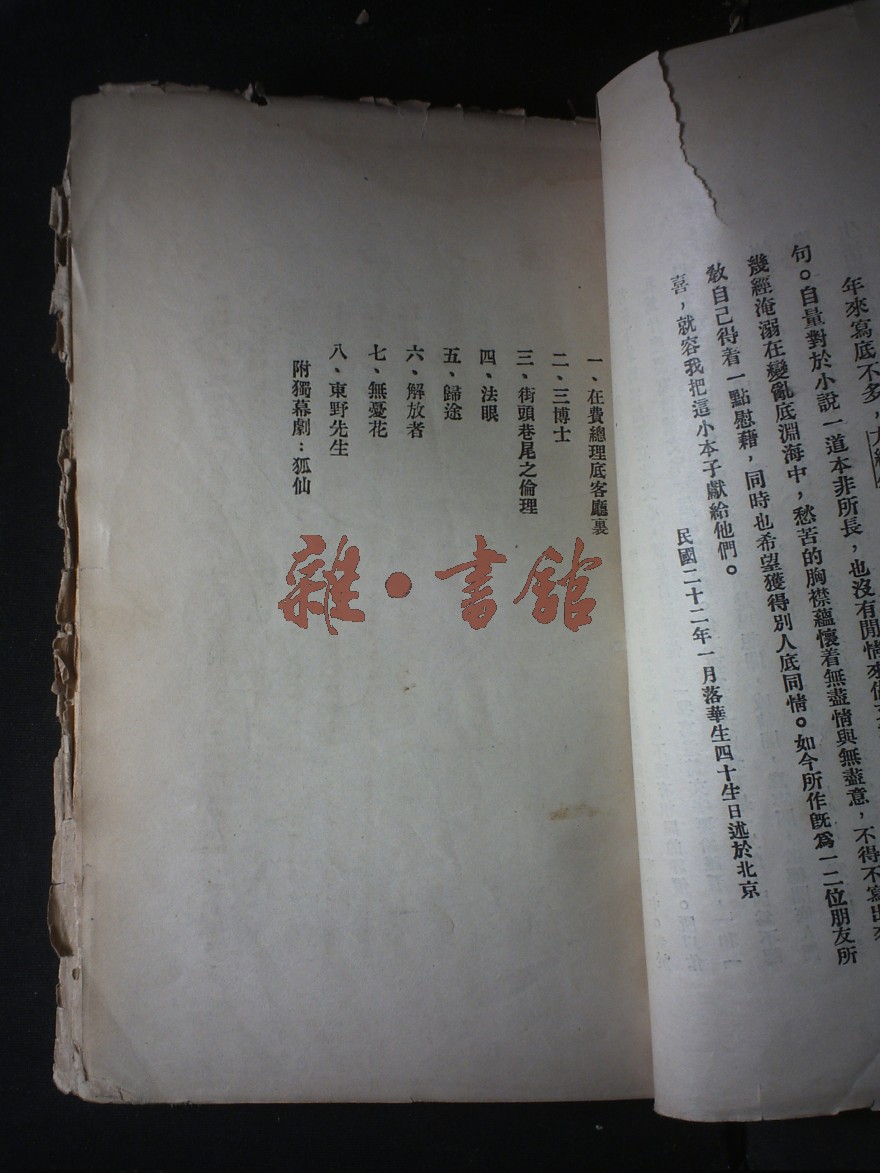 年來寫底不多，
句。自量對於小說一道本非所長，也沒有閒情來
幾經淹溺在變亂底淵海中，愁苦的胸襟蘊懷着無盡情與無盡意，不得不寫出來
敎自己得着一點慰藉，同時也希望獲得別人底同情。如今所作旣爲一二位朋友所
喜，就容我把這小本子獻給他們。
民國二十二年一月落華生四十生日述於北京
一、在費總理底客廳裏
二、三博士
三、街頭巷尾之倫理
四、法眼
五、歸途
六、解放者
七、無憂花
八、東野先生
附獨幕劇：狐仙
雜·書館